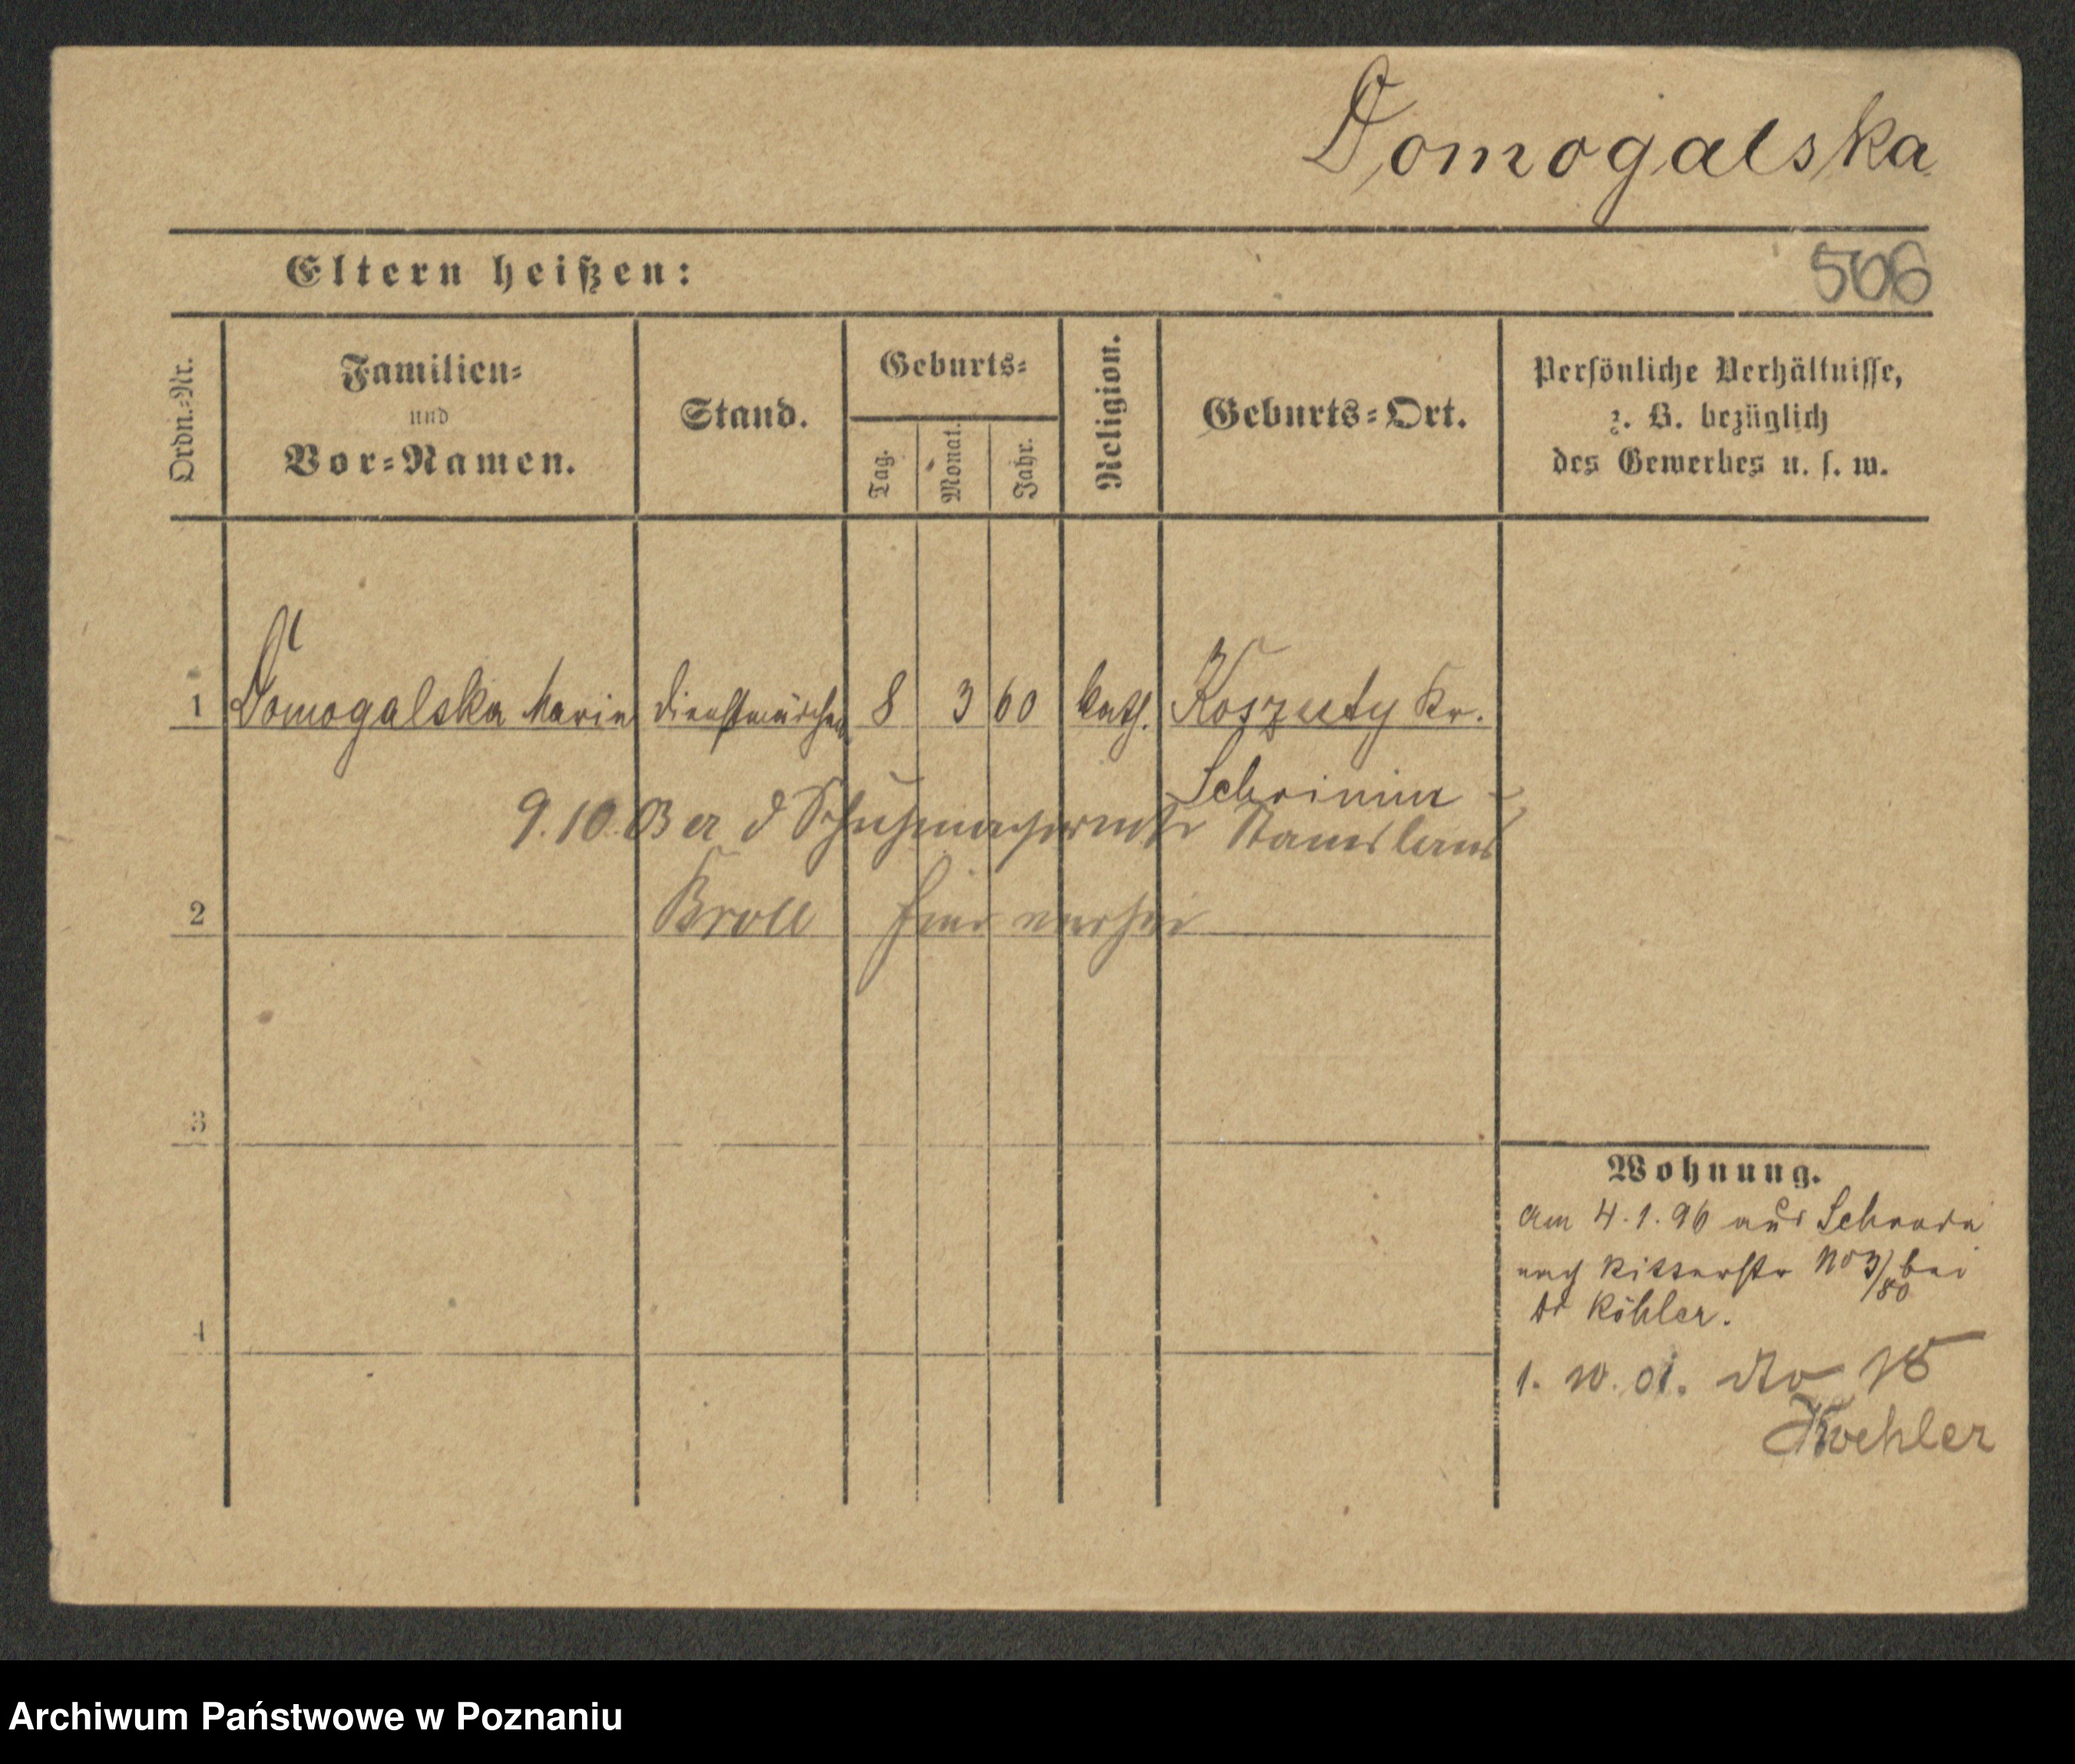 Domogalska
Eltern heißen:
506
Ordn.-Nr.
Familien-
und
Vor-Namen.
Stand.
Geburts-
Tag.
Monat.
Jahr.
Religion.
Geburts-Ort.
Persönliche Verhältnisse,
z. B. bezüglich
des Gewerbes u. s. w.
1 Domogalska Maria Dienstmädchen 8 3 60 kath. Koszuty Kr.
Schrimm
9.10.03 er d Schuhmacher Stanislaus
2 Kroll hier
3
Wohnung.
am 4.1.96 aus Schroda
nach Ritterstr No 3/80 bei
Dr Köhler.
4
1. 10. 01. dto
Koehler
Archiwum Państwowe w Poznaniu